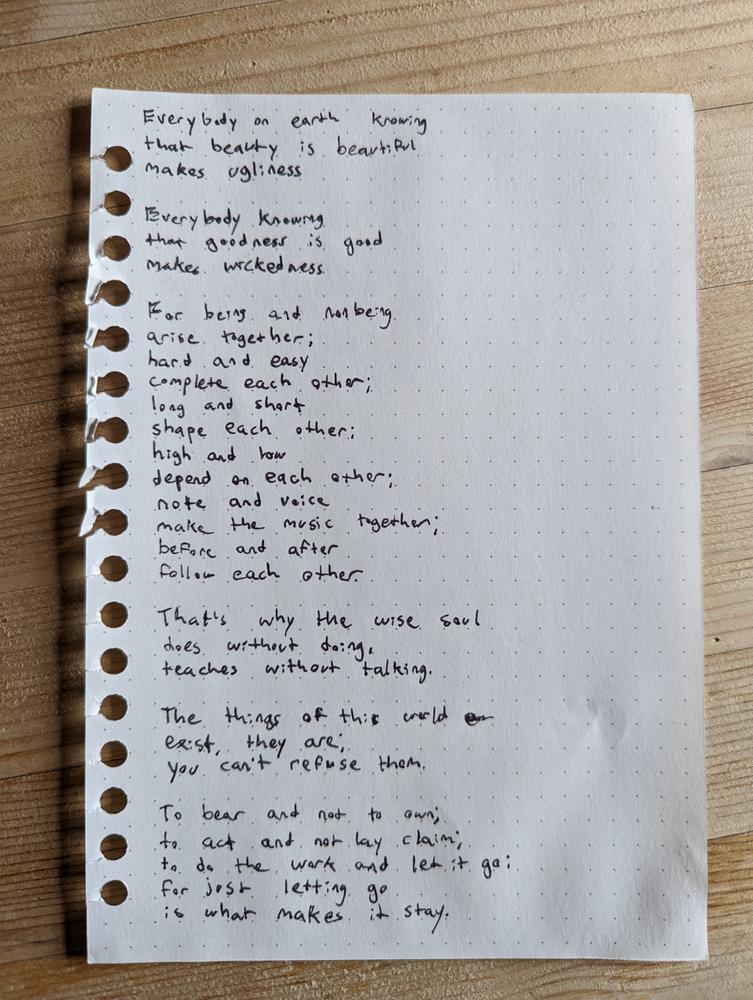 Everybody on earth knowing
that beauty is beautiful
makes ugliness
Everybody knowing
that goodness is good
makes wickedness
For being and nonbeing
arise together;
hard and easy
complete each other;
long and short
shape each other;
high and low
depend on each other;
note and voice
make the music together;
before and after
follow each other.
That's why the wise soul
does without doing,
teaches without talking.
The things of this world
exist, they are;
you can't refuse them.
To bear and not to own;
to act and not lay claim;
to do the work and let it go:
for just letting go
is what makes it stay.